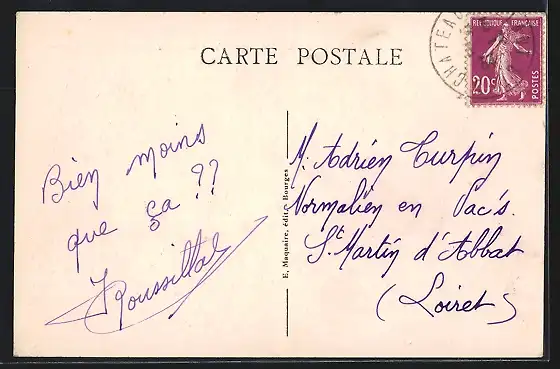 CARTE POSTALE
RÉPUBLIQUE FRANÇAISE
20c
POSTES
CHATEAU
Bien moins
que ça ??
Roussillat
E. Maquaire, édit., Bourges
M. Adrien Turpin
Normalien en Vac's.
St Martin d'Abbat
(Loiret)